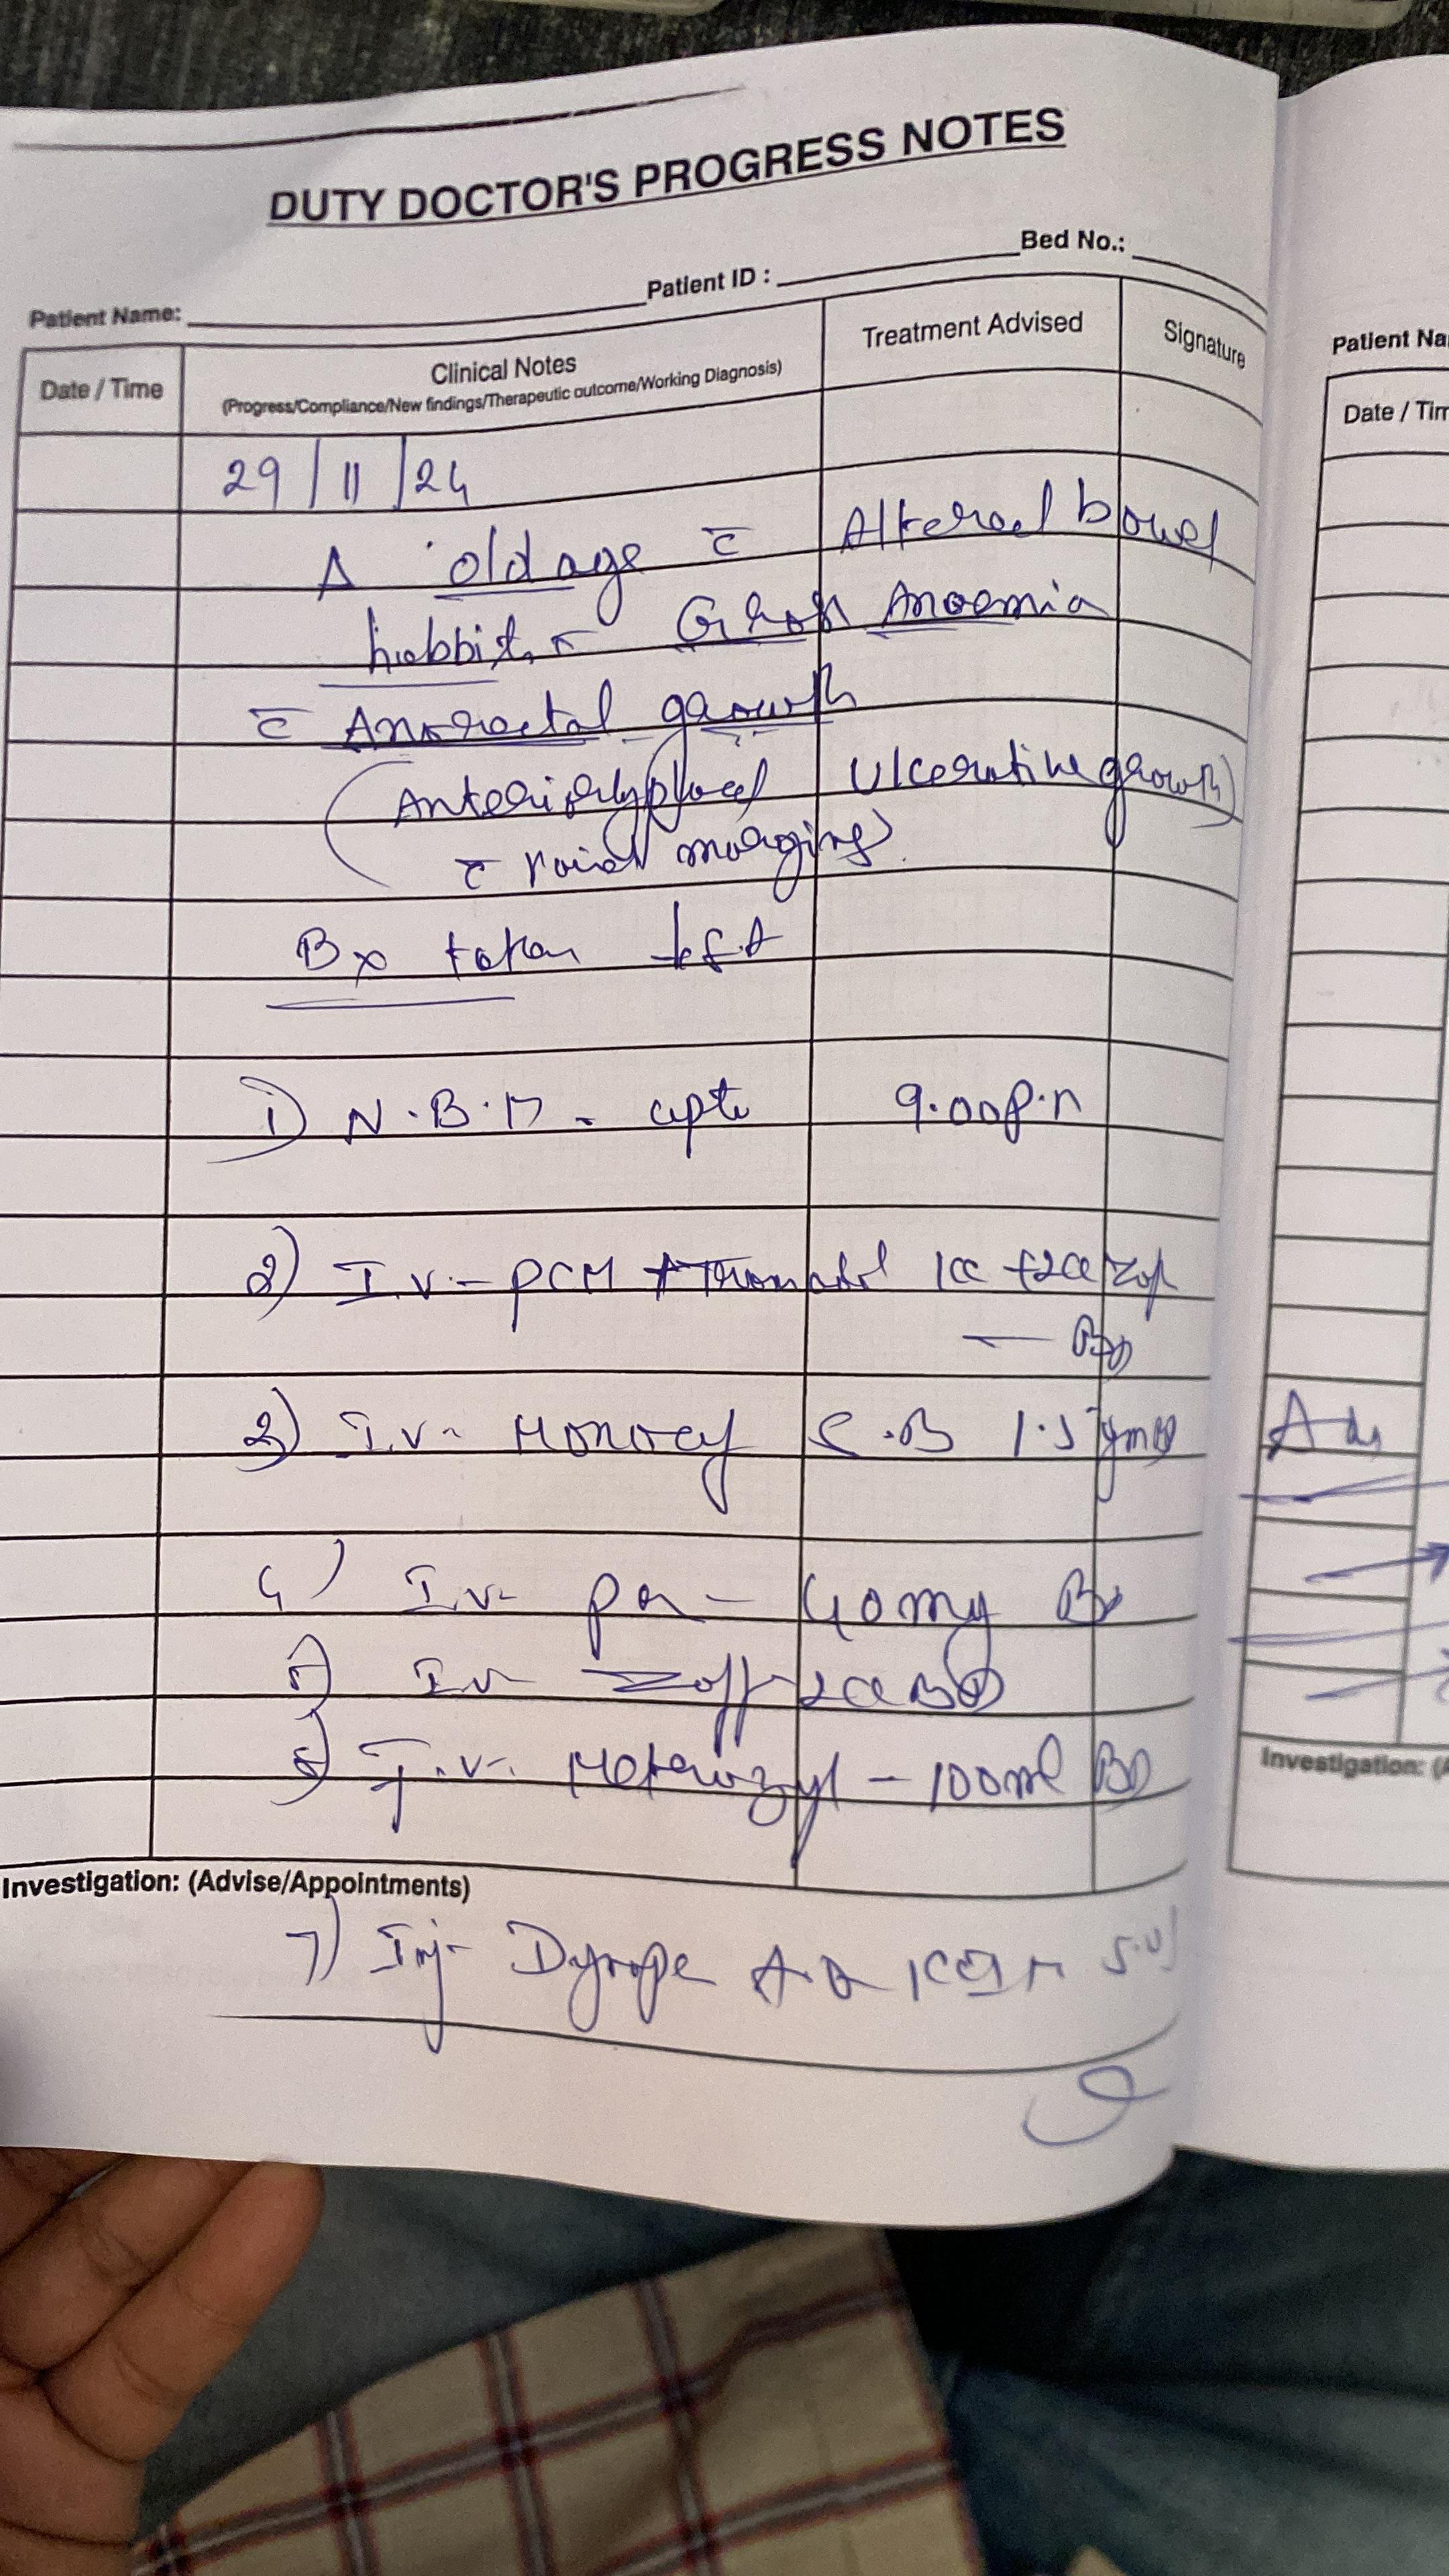 DUTY DOCTOR'S PROGRESS NOTES
Patient Name: Patient ID : Bed No.:
Date / Time Clinical Notes Treatment Advised Signature
(Progress/Compliance/New findings/Therapeutic outcome/Working Diagnosis)
29/11/24
old age c̄ Altered bowel
habbit, Gross Anaemia
c̄ Anorectal growth
(Anteriorly placed Ulcerative growth)
c̄ margins
Bx taken
1) N.B.M - upto 9.00 p.m
2) I.V. - PCM + Tramadol 1cc + 2cc
3) I.V - Monocef S.B 1.5 gm BD
4) I.V - Pan - 40 mg BD
5) I.V Zoffr 2cc BD
6) I.V. Meterozyl - 100 ml BD
Investigation: (Advise/Appointments)
7) Inj -
Patient Na
Date / Tim
Investigation: (A